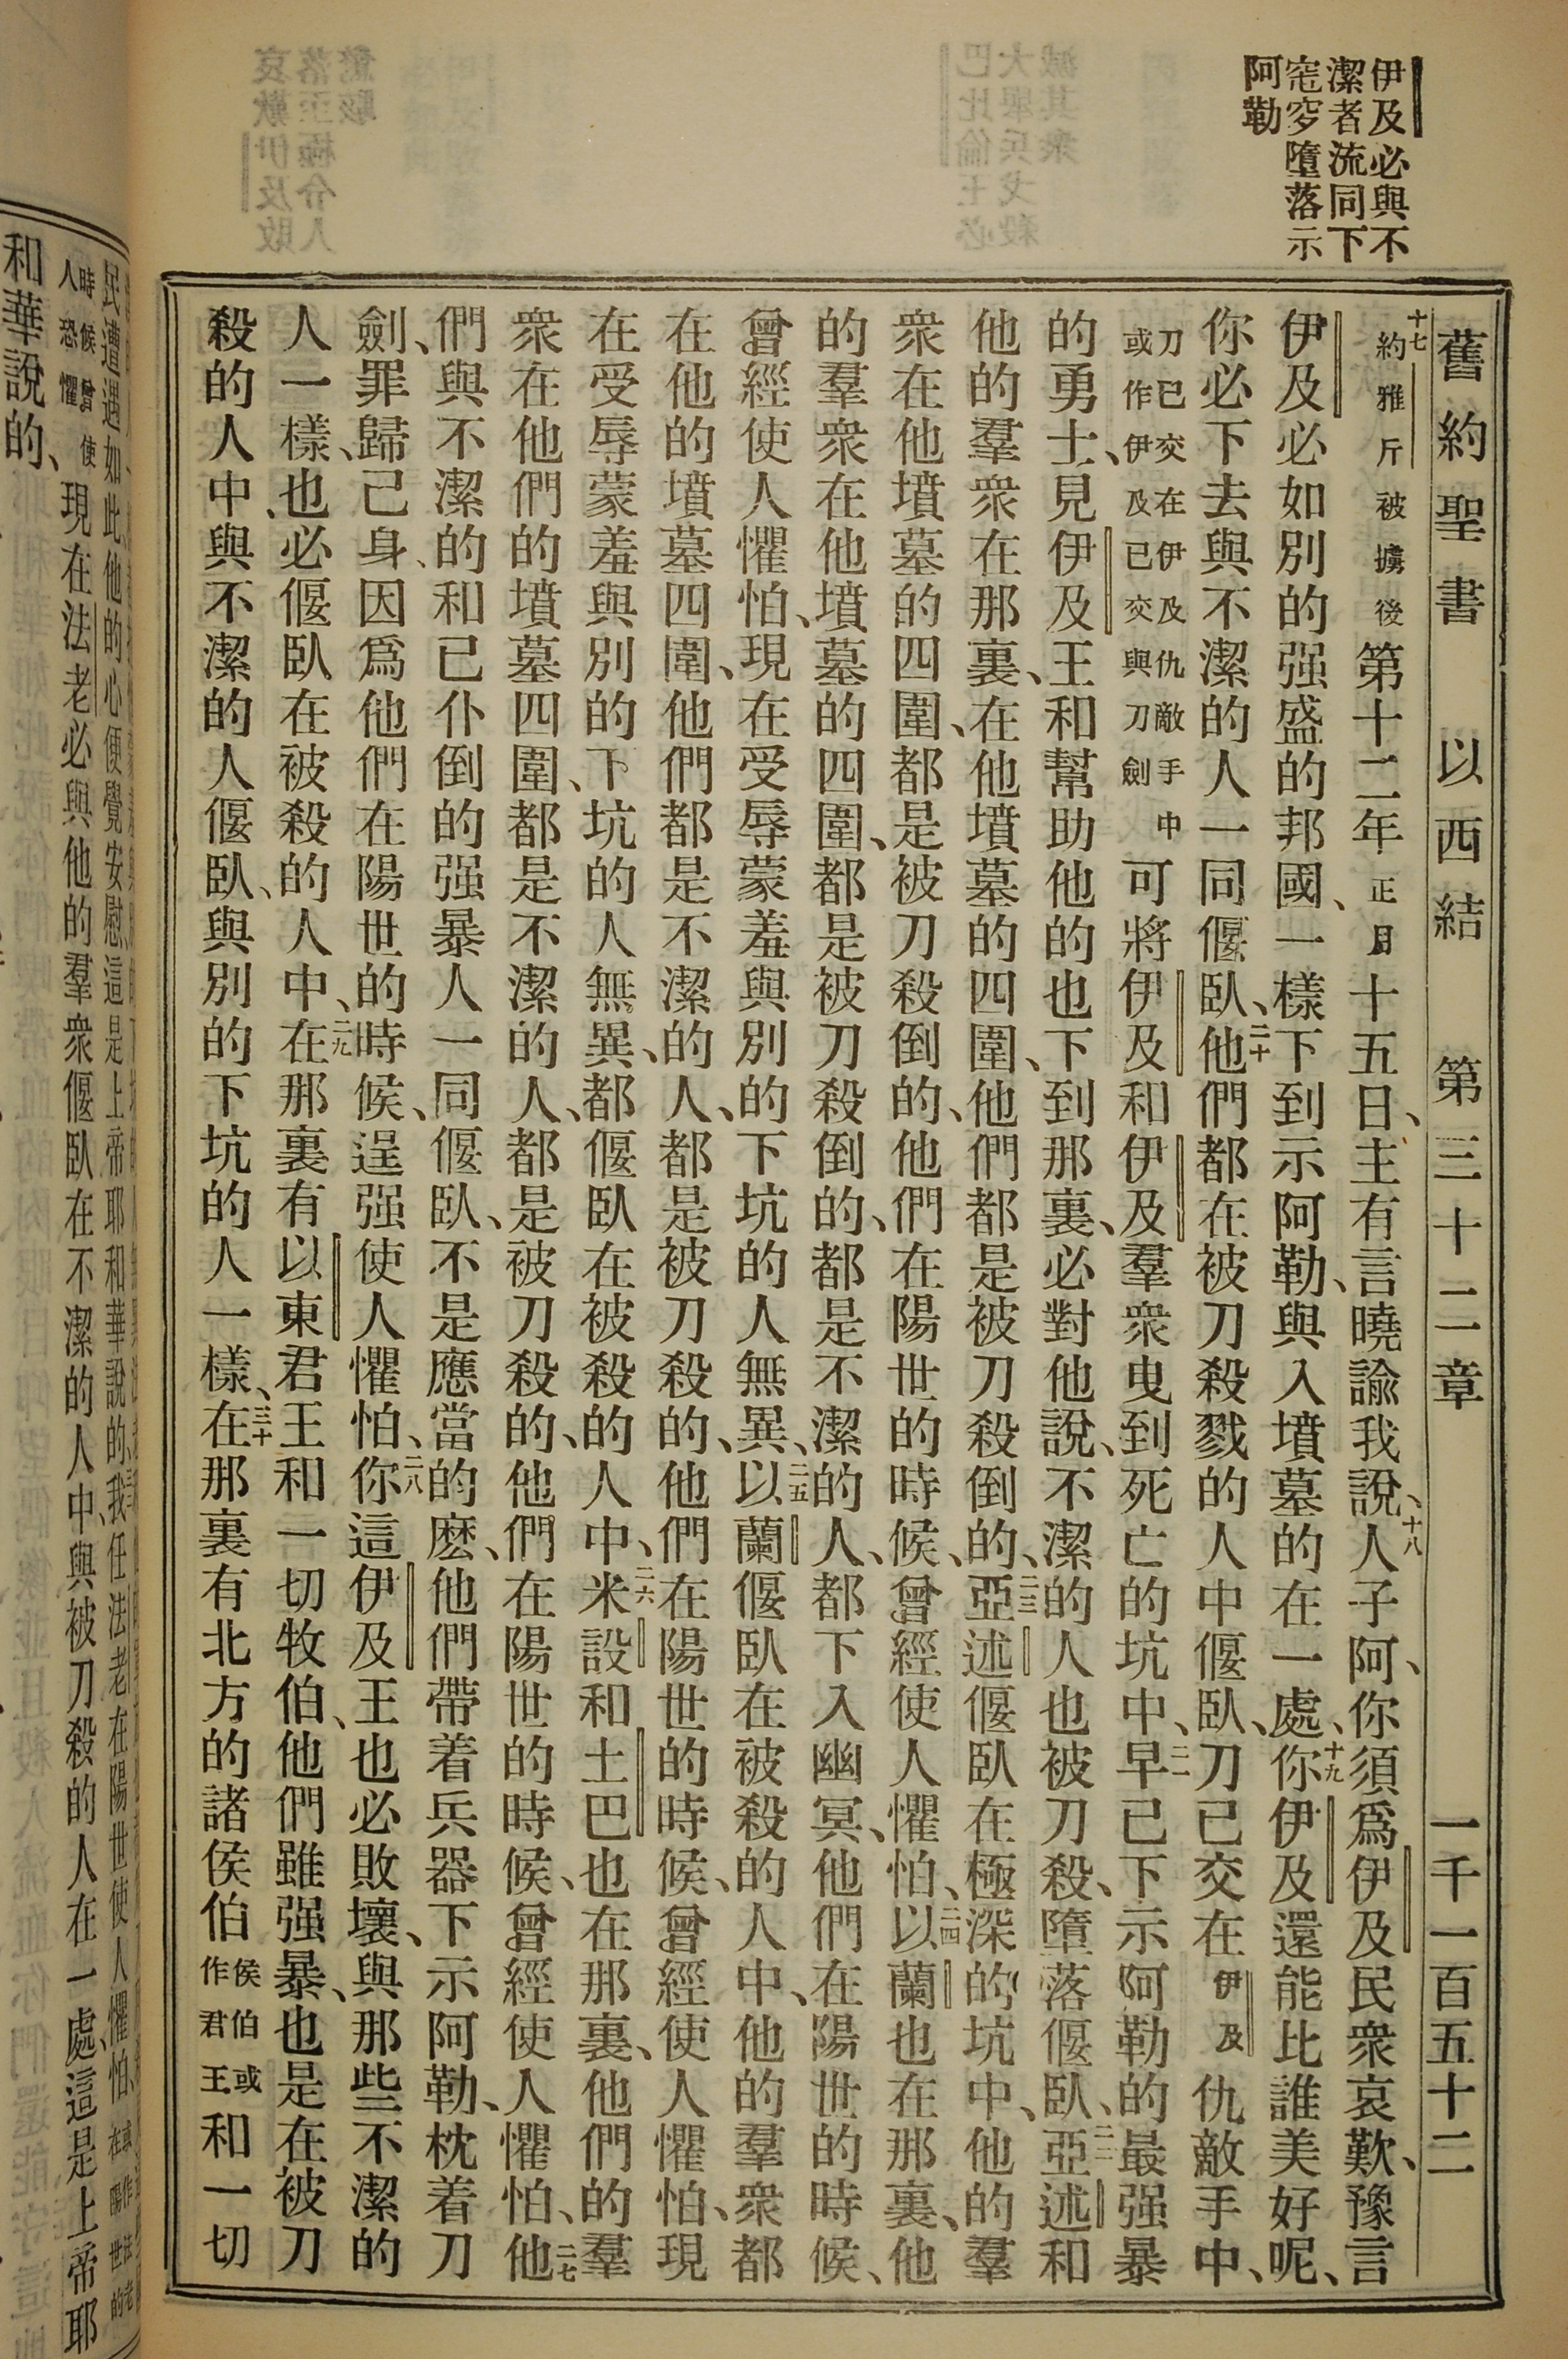 伊及必與不
潔者流同下
窀穸墮落示
阿勒
舊約聖書 以西結 第三十二章 一千一百五十二
十七約雅斤被擄後第十二年正月十五日、主有言曉諭我說、十八人子阿、你須爲伊及民衆哀歎、豫言
伊及必如別的强盛的邦國、一樣下到示阿勒、與入墳墓的在一處、十九你伊及還能比誰美好呢、
你必下去與不潔的人一同偃臥、二十他們都在被刀殺戮的人中偃臥、刀已交在伊及仇敵手中、
刀已交在伊及仇敵手中
或作伊及已交與刀劍
可將伊及和伊及羣衆曳到死亡的坑中、二一早已下示阿勒的最强暴
的勇士、見伊及王和幫助他的也下到那裏、必對他說、不潔的人也被刀殺、墮落偃臥、二二亞述和
他的羣衆在那裏、在他墳墓的四圍、他們都是被刀殺倒的、二三亞述偃臥在極深的坑中、他的羣
衆在他墳墓的四圍、都是被刀殺倒的、他們在陽世的時候、曾經使人懼怕、二四以蘭也在那裏、他
的羣衆在他墳墓的四圍、都是被刀殺倒的、都是不潔的人、都下入幽冥、他們在陽世的時候、
曾經使人懼怕、現在受辱蒙羞與別的下坑的人無異、二五以蘭偃臥在被殺的人中、他的羣衆都
在他的墳墓四圍、他們都是不潔的人、都是被刀殺的、他們在陽世的時候、曾經使人懼怕、現
在受辱蒙羞與別的下坑的人無異、都偃臥在被殺的人中、二六米設和土巴也在那裏、他們的羣
衆在他們的墳墓四圍、都是不潔的人、都是被刀殺的、他們在陽世的時候、曾經使人懼怕、二七他
們與不潔的和已仆倒的强暴人一同偃臥、不是應當的麼、他們帶着兵器下示阿勒、枕着刀
劍、罪歸己身、因爲他們在陽世的時候、逞强使人懼怕、二八你這伊及王也必敗壞、與那些不潔的
人一樣、也必偃臥在被殺的人中、二九在那裏有以東君王和一切牧伯、他們雖强暴、也是在被刀
殺的人中、與不潔的人偃臥、與別的下坑的人一樣、三十在那裏有北方的諸侯伯侯伯或作君王和一切
民遭遇如此他的心便覺安慰、這是上帝耶和華說的、我任法老在陽世使人懼怕、
時候曾使
人恐懼
現在法老必與他的羣衆偃臥在不潔的人中、與被刀殺的人在一處、這是上帝耶
和華說的、